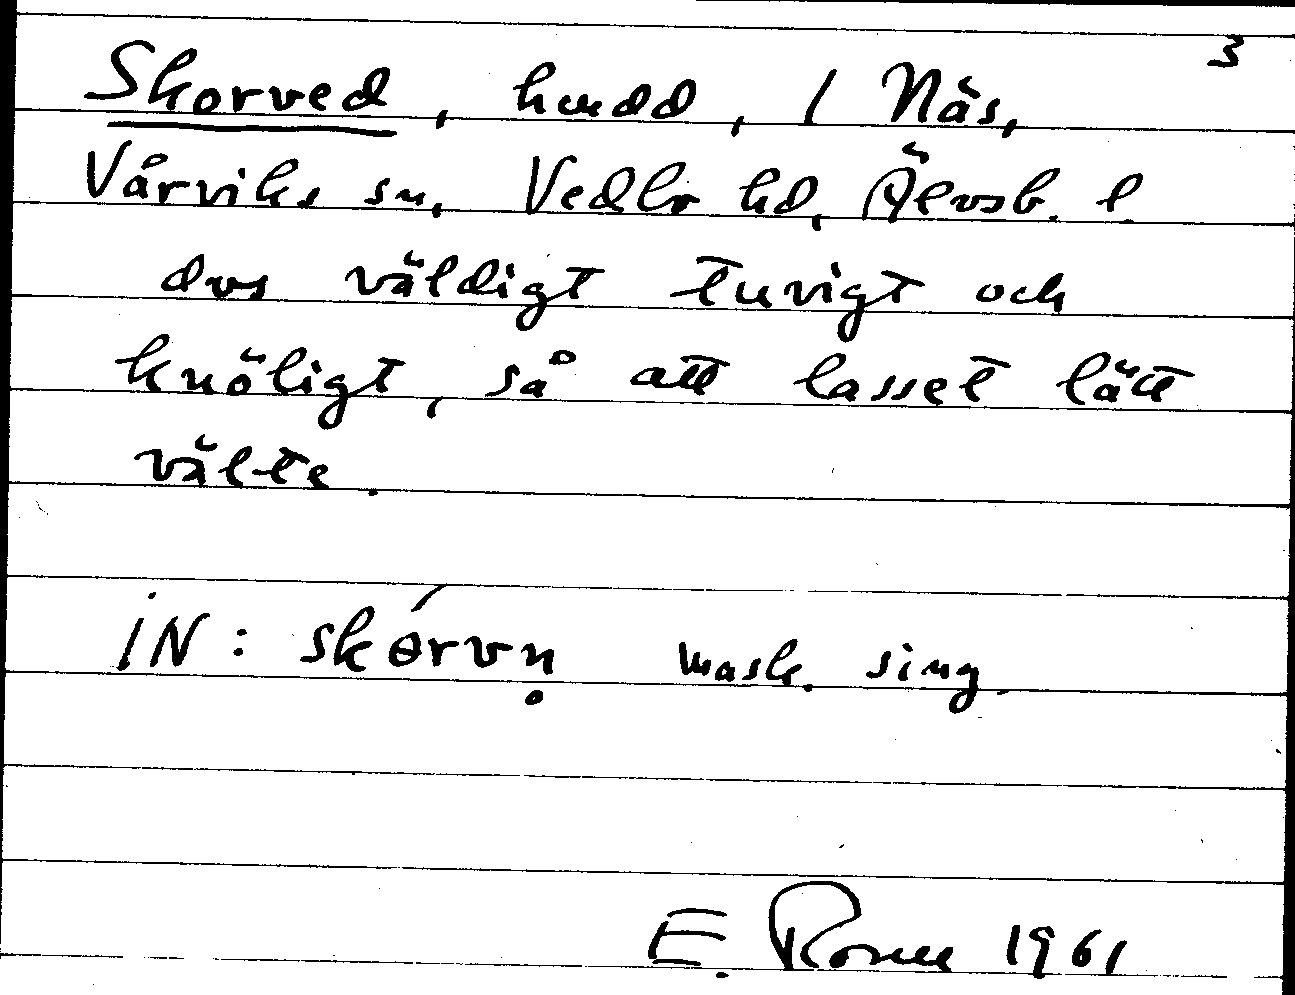 3
Skorved, hmdd, / Näs,
Vårviks sn, Vedbo hd, Älvsb. l.
dvs väldigt tuvigt och
knöligt, så att lasset lätt
välte.
IN: skórvn̥ mask. sing.
E. 1961